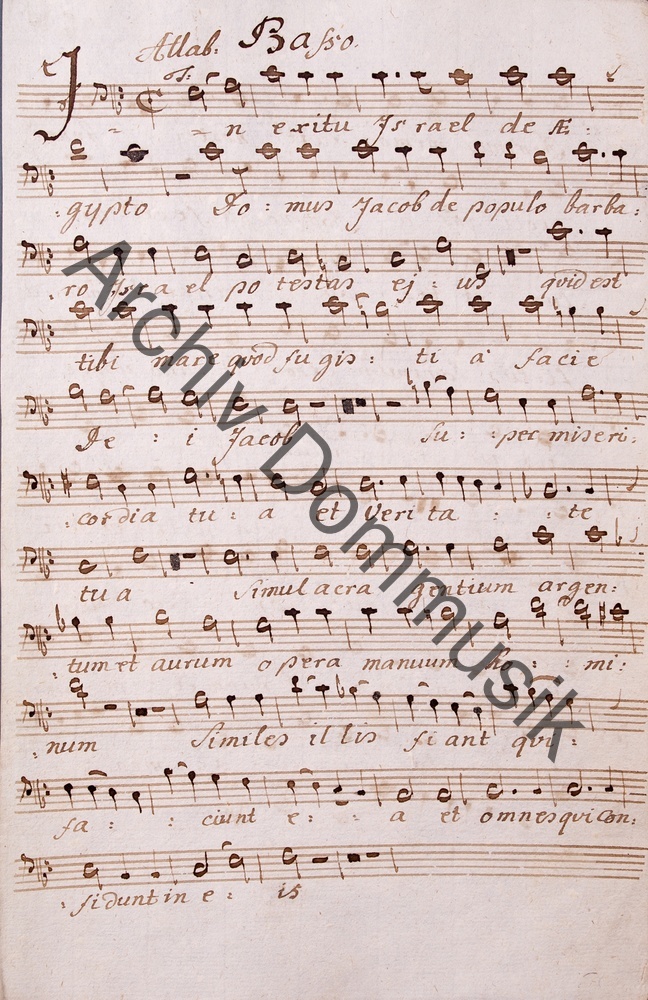 Allab. Basso.
In exitu Israel de Æ:
:gypto Do: mus Jacob de populo barba:
:ro Isra el po testas ej: us quid est
tibi mare quod fu gis: ti a facie
De: i Jacob su: :per miseri:
:cordia tu: a et Veri ta: :te
tua Simulacra gentium argen:
:tum et aurum opera manuum ho: :mi:
:num Similes il lis fi ant qui:
fa: : ciunt e: a et omnes qui con:
:fidunt in e: is
Archiv Dommusik